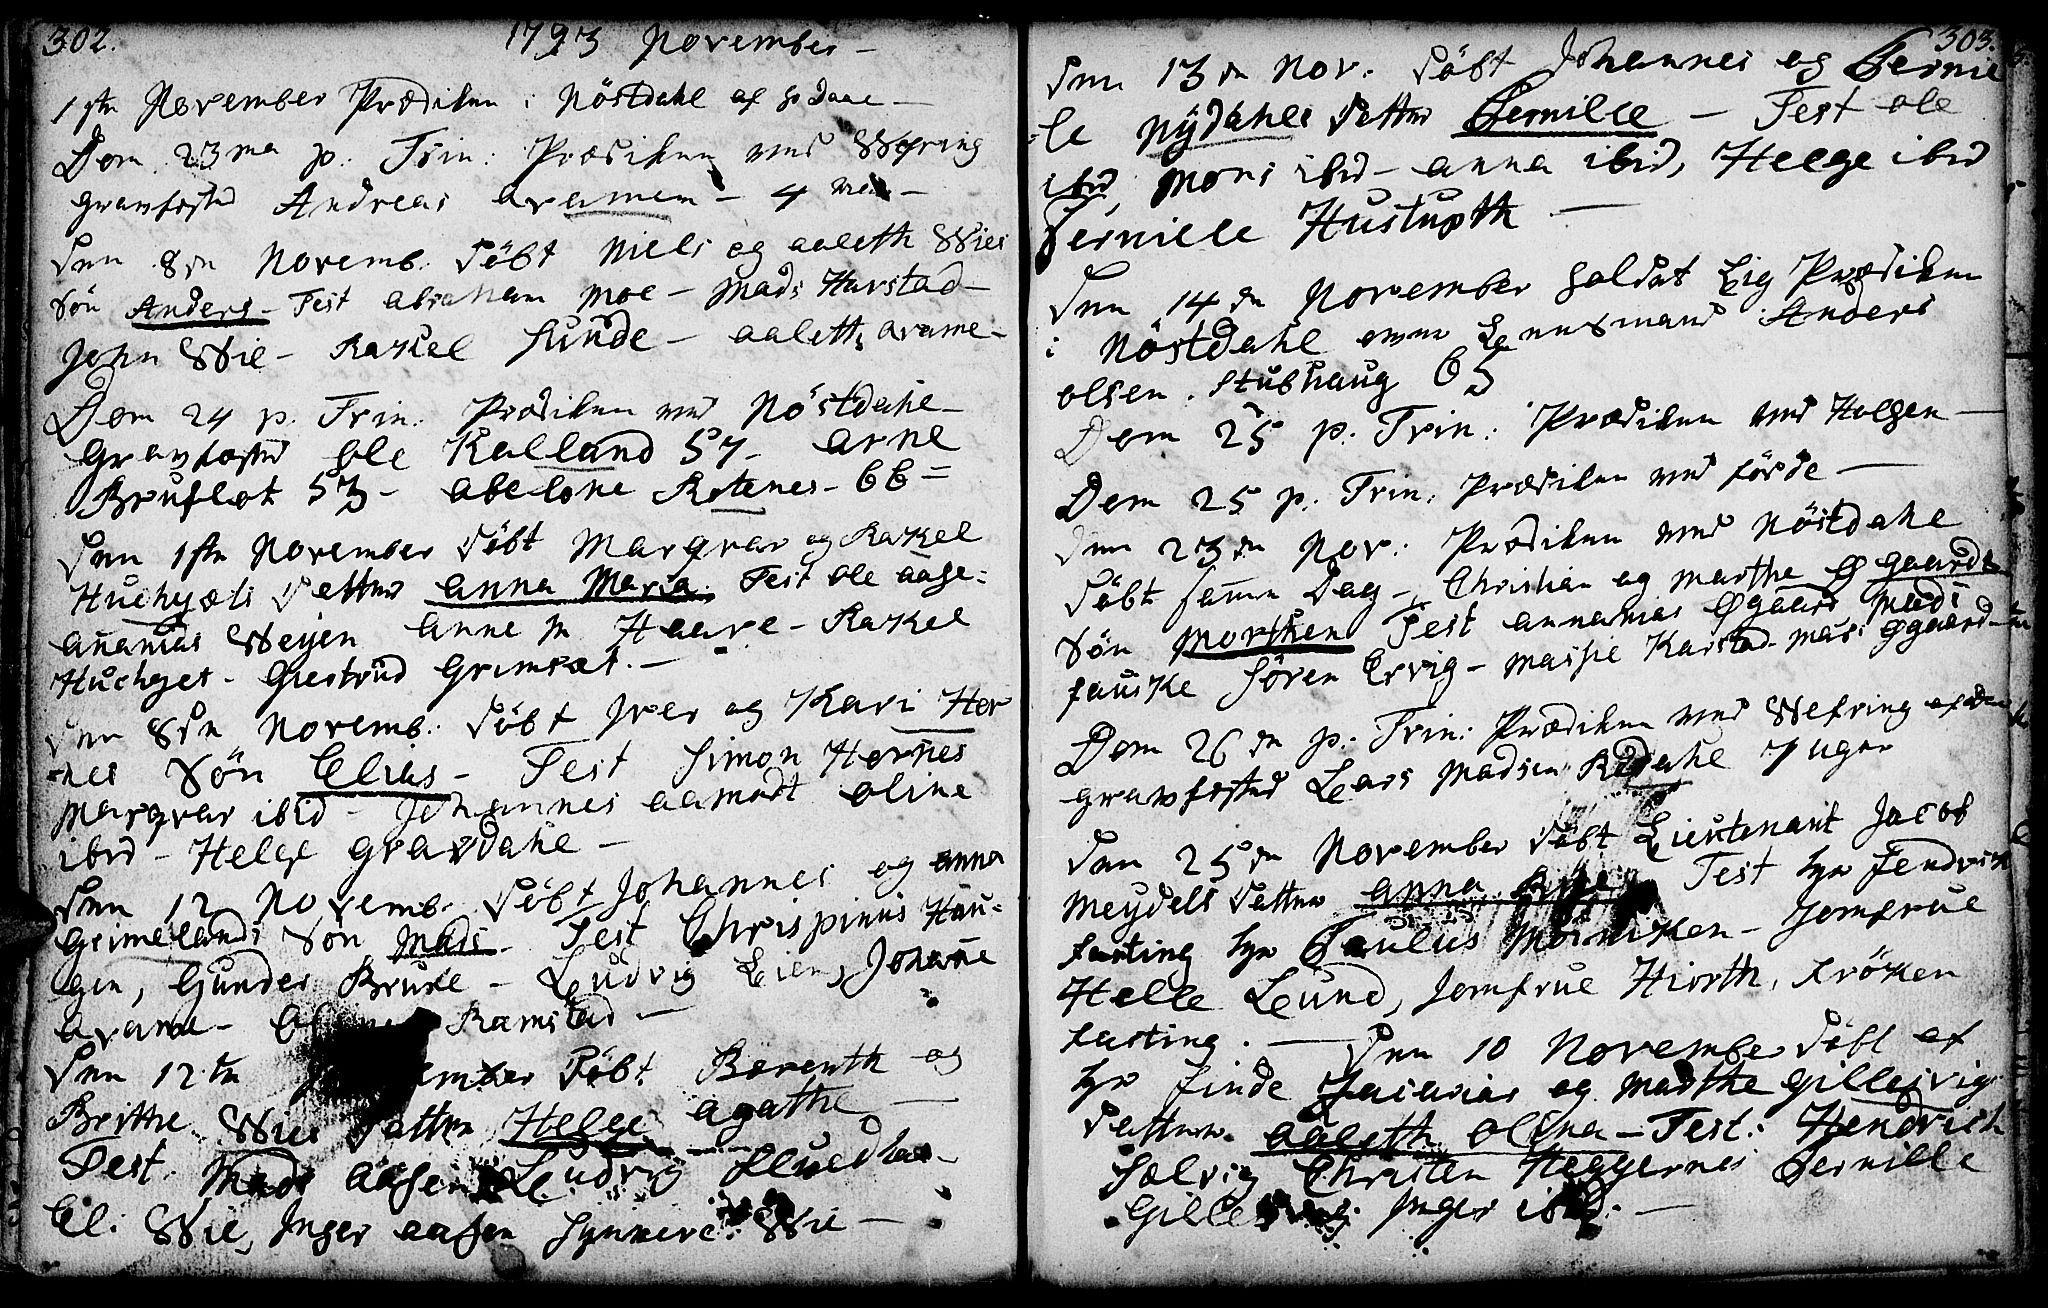 302.
1793 November -
1ste November Prædiken i Nöstdahl af hr Daae -
Dom 23ma p. Trin: Prædiken ved Wefring
gravfæsted Andreas Aramem - 4 -
Den 8de Novemb. Döbt Niels og aaleth Wies
Sön Anders - Test Abraham Moe - Mads Harstad -
John Wie - Rakel Sunde - aaleth Arame -
Dom 24 p. Trin: Prædiken ved Nöstdahl -
Gravfæsted Ole Kalland 57 - Arne
Bruflot 53 - Abelone Rotenes - 66 =
Den 1ste November Döbt Margrav og Rakel
Huchysets Datter Anna Maria Test Ole aase =
ananias Weyen Anne M Haare - Rakel
Huchyset - Giertrud Grimsæt. -
Den 8de Novemb: Döbt Iver og Kari Hor
=nes Sön Elias - Test Simon Hornes
Margrav ibid - Johannes aamodt Oline
ibid - Helge Gravdahl -
Den 12 Novemb. Döbt Johannes og Anna
Grimelands Sön Mads - Test Chrispinus Hau-
gen, Gunder Brune - Ludvig Lien, Johanne
Arame - Ramstad -
Den 12te Döbt Berenth og
Brithe Wies Datter Helge Agathe -
Test: Mads Aasen Ludvig
El: Wie, Inger Aasen Synneve Wie -
303.
Den 13de Nov. Döbt Johannes og Pernil
=le Nydahls Datter Pernille - Test Ole
ibid, Mons ibid - Anna ibid, Helge ibid
Pernille Hustupth -
Den 14de November holdet Lig Prædiken
i Nöstdahl over Lænsmand Anders
Olsen Stubhaug 65
Dom 25 p. Trin: Prædiken ved Holsen -
Dom 25 p. Trin: Prædiken ved förde -
Den 23de Nov: Prædiken ved Nöstdahl
Döbt samme Dag - Christian og Marthe Øgaards
Sön Morthen Test Annanias Øgaard Mads
fauske Sören Ervig - Massie Karstad - Mari Øgaard -
Dom 26de p. Trin: Prædiken ved Wefring
gravfæsted Lars Madsen 7 uger
Den 25de November Döbt Lieutenant Jacob
Meydels Datter Anna Test hr Fendrik
fasting hr Paulus - Jomfrue
Helle Lund, Jomfrue Hiorth, Fröken
fasting. - Den 10 November Döbt af
hr Finde Zacarias og Marthe Gillesvigs
Datter Aaleth Olina - Test: Hendrich
Sælvig Christen Heggernes Pernille
Gillesvig Inger ibid: -